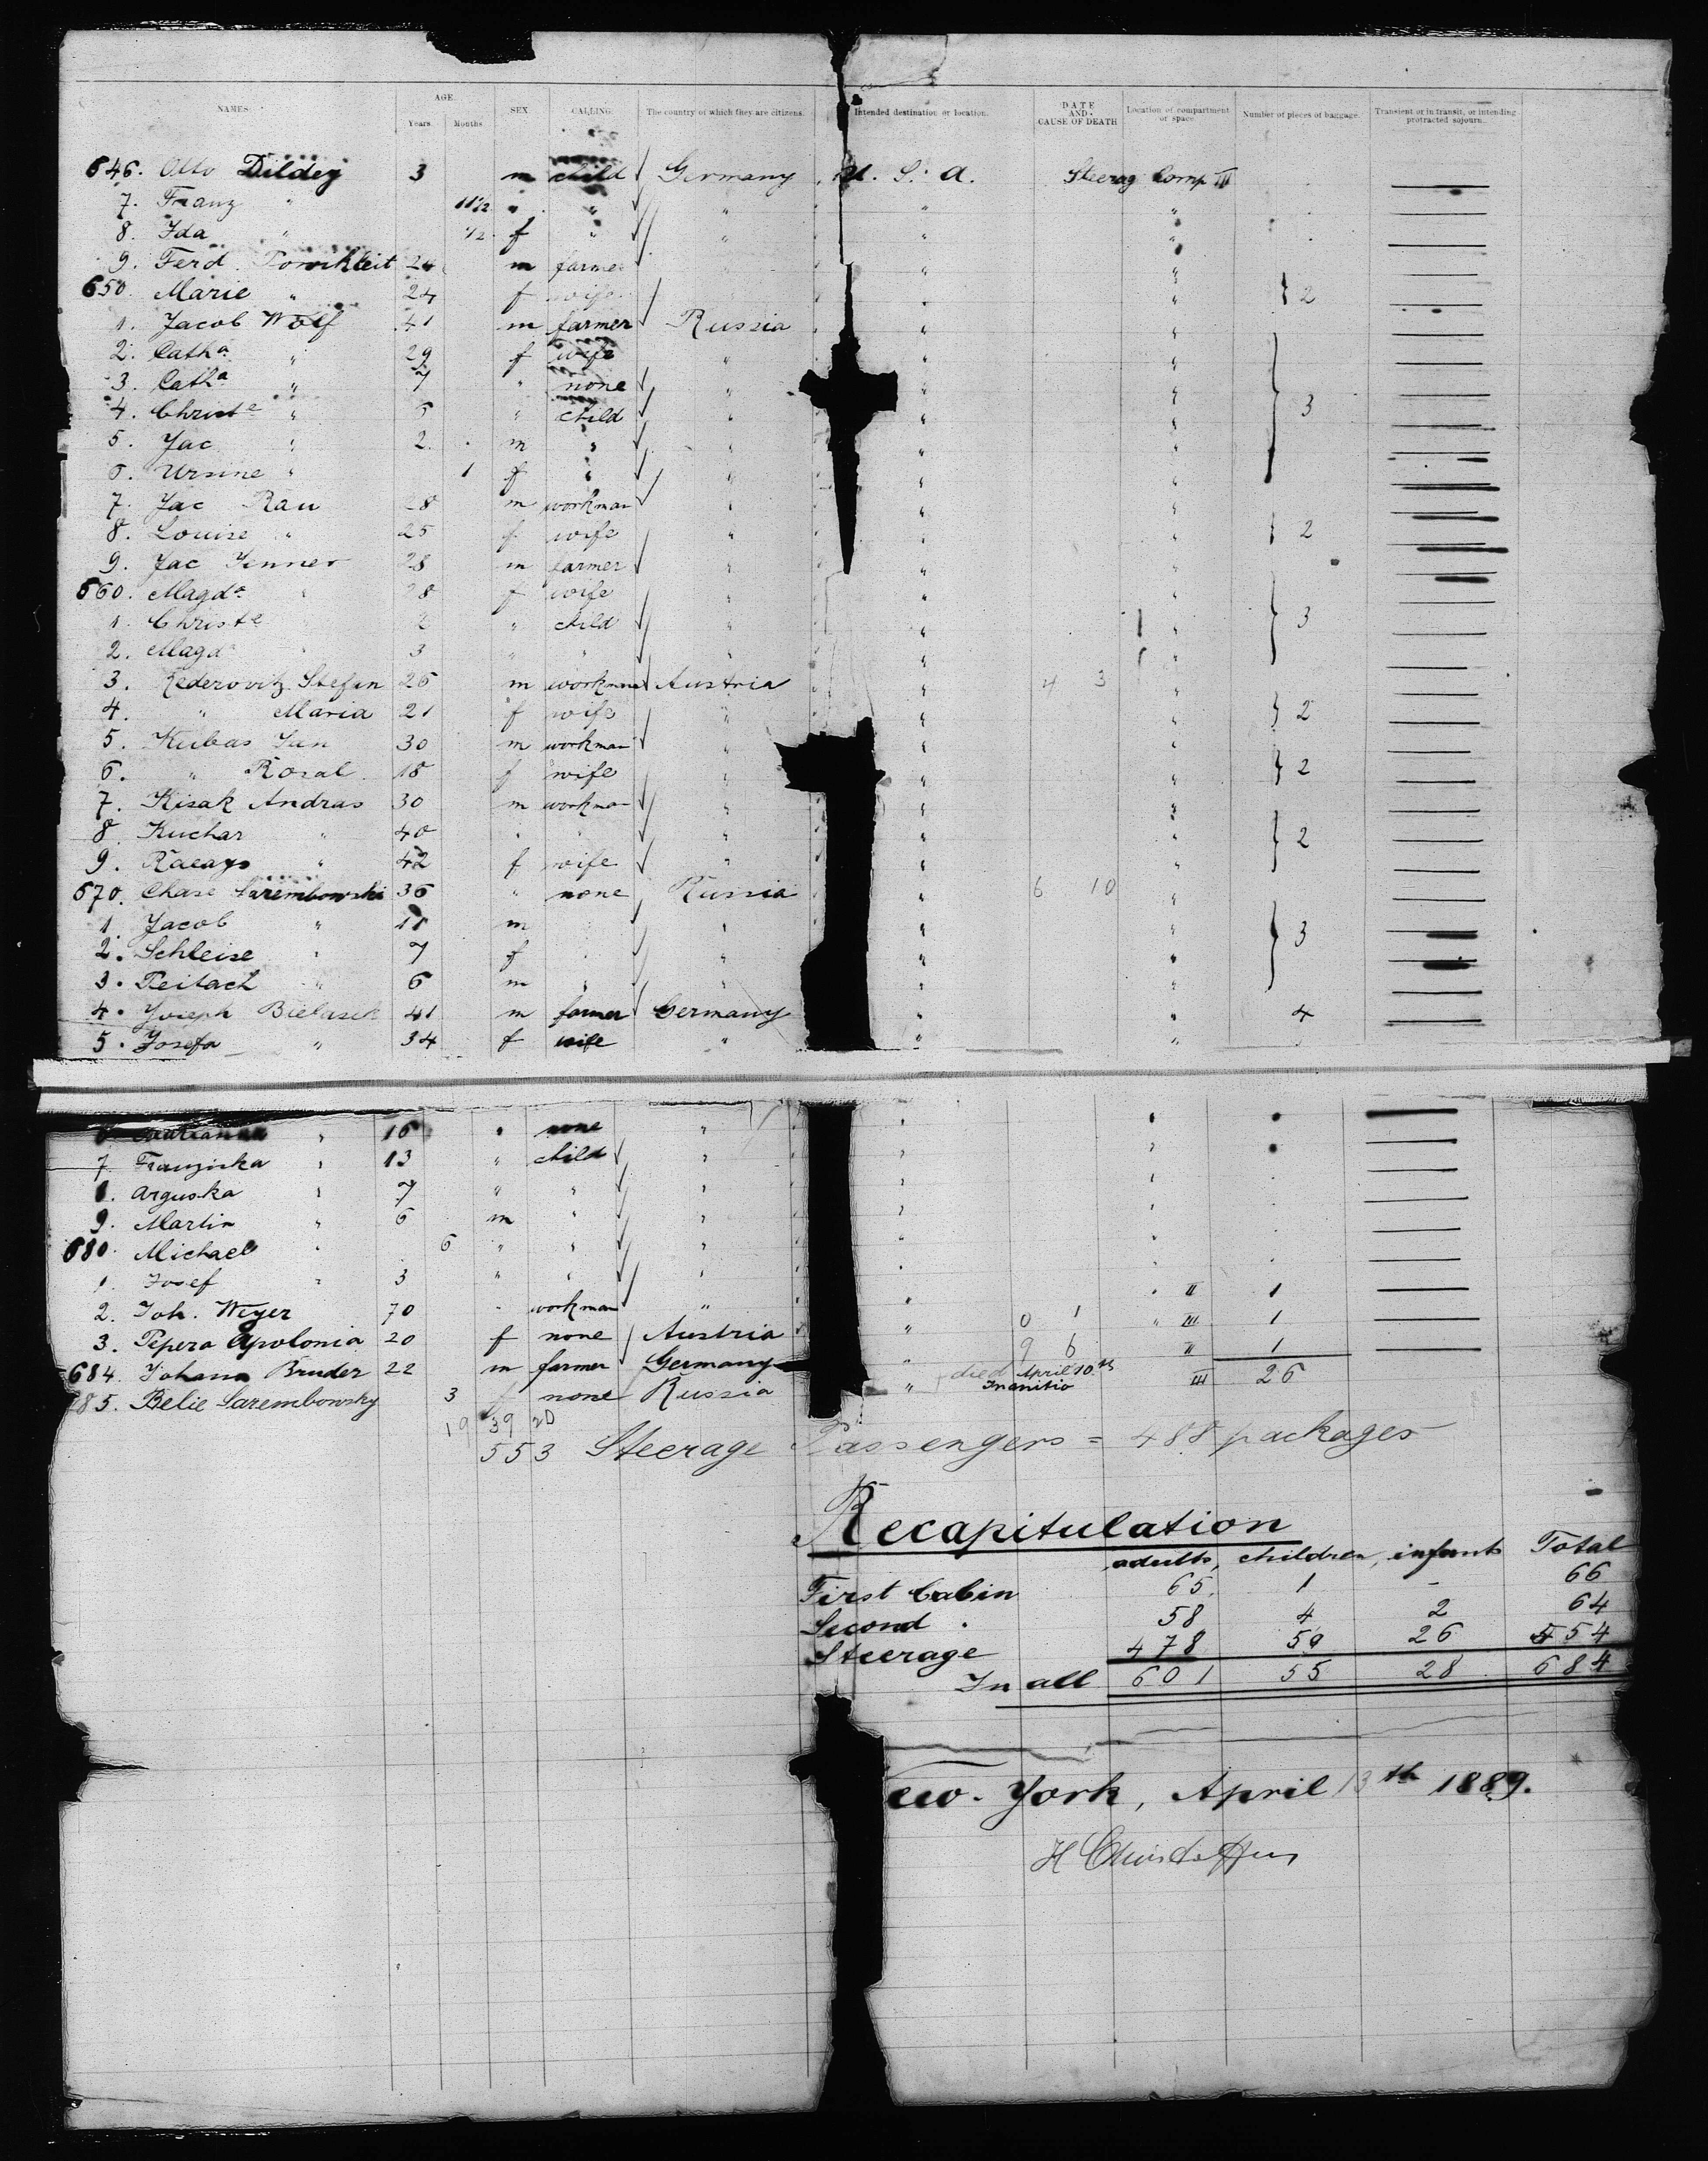 NAMES. AGE. Years. Months SEX CALLING. The country of which they are citizens. Intended destination or location. DATE AND CAUSE OF DEATH Location of compartment or space Number of pieces of baggage Transient or in transit, or intending protracted sojourn.
646. Otto Dildey 3 m child Germany U. S. A. Steerag Comp III
7. Franz " 11 1/2 " " " " "
8. Ida " 1/2 f " " " "
9. Ferd. 24 m farmer " "
650. Marie " 24 f wife " " 2
1. Jacob Wolf 41 m farmer Russia " "
2. Catha " 29 f wife " " "
3. Catha " 7 " none " " "
4. Christe " 5 " child " " " 3
5. Jac " 2 m " " " "
6. Ursine " 1 f " " " "
7. Jac Rau 28 m workman " " "
8. Louise " 25 f wife " " " 2
9. Jac Jenner 28 m farmer " " "
660. Magda " 28 f wife " " "
1. Christe " 2 " child " " " 3
2. Magda " 3 " " " " "
3. Rederovitz Stefan 26 m workman Austria " 4 3 "
4. " Maria 21 f wife " " " 2
5. Kubas Jan 30 m workman " " "
6. " Rosal 18 f wife " " " 2
7. Kisak Andras 30 m workman " " "
8. Kuchar " 40 " " " " " 2
9. " 42 f wife " " "
670. Chase Sarembowski 36 " none Russia " 6 10 "
1. Jacob " 11 m " " "
2. Schleise " 7 f " " " 3
3. Peitach " 6 m " " " "
4. Joseph Bielasek 41 m farmer Germany " " 4
5. Josefa " 34 f wife " " "
6. " 16 " none " " "
7. Franziska " 13 " child " " "
8. Arguska " 7 " " " " "
9. Martin " 6 m " " " "
680. Michael " 6 " " " " "
1. Josef " 3 " " " "
2. Joh. Weyer 70 " workman " " " II 1
3. Pepera Apolonia 20 f none Austria " 0 1 " III 1
684. Johann Bruder 22 m farmer Germany " 9 6 II 1
685. Belie Sarembowsky 3 f none Russia " died April 10th Inanitio III 26
19 39 20
553 Steerage Passengers = 488 packages
Recapitulation
adults, children, infants Total
First Cabin 65. 1 - 66
Second " 58 4 2 64
Steerage 478 50 26 554
In all 601 55 28 684
ew-York, April 13th 1889.